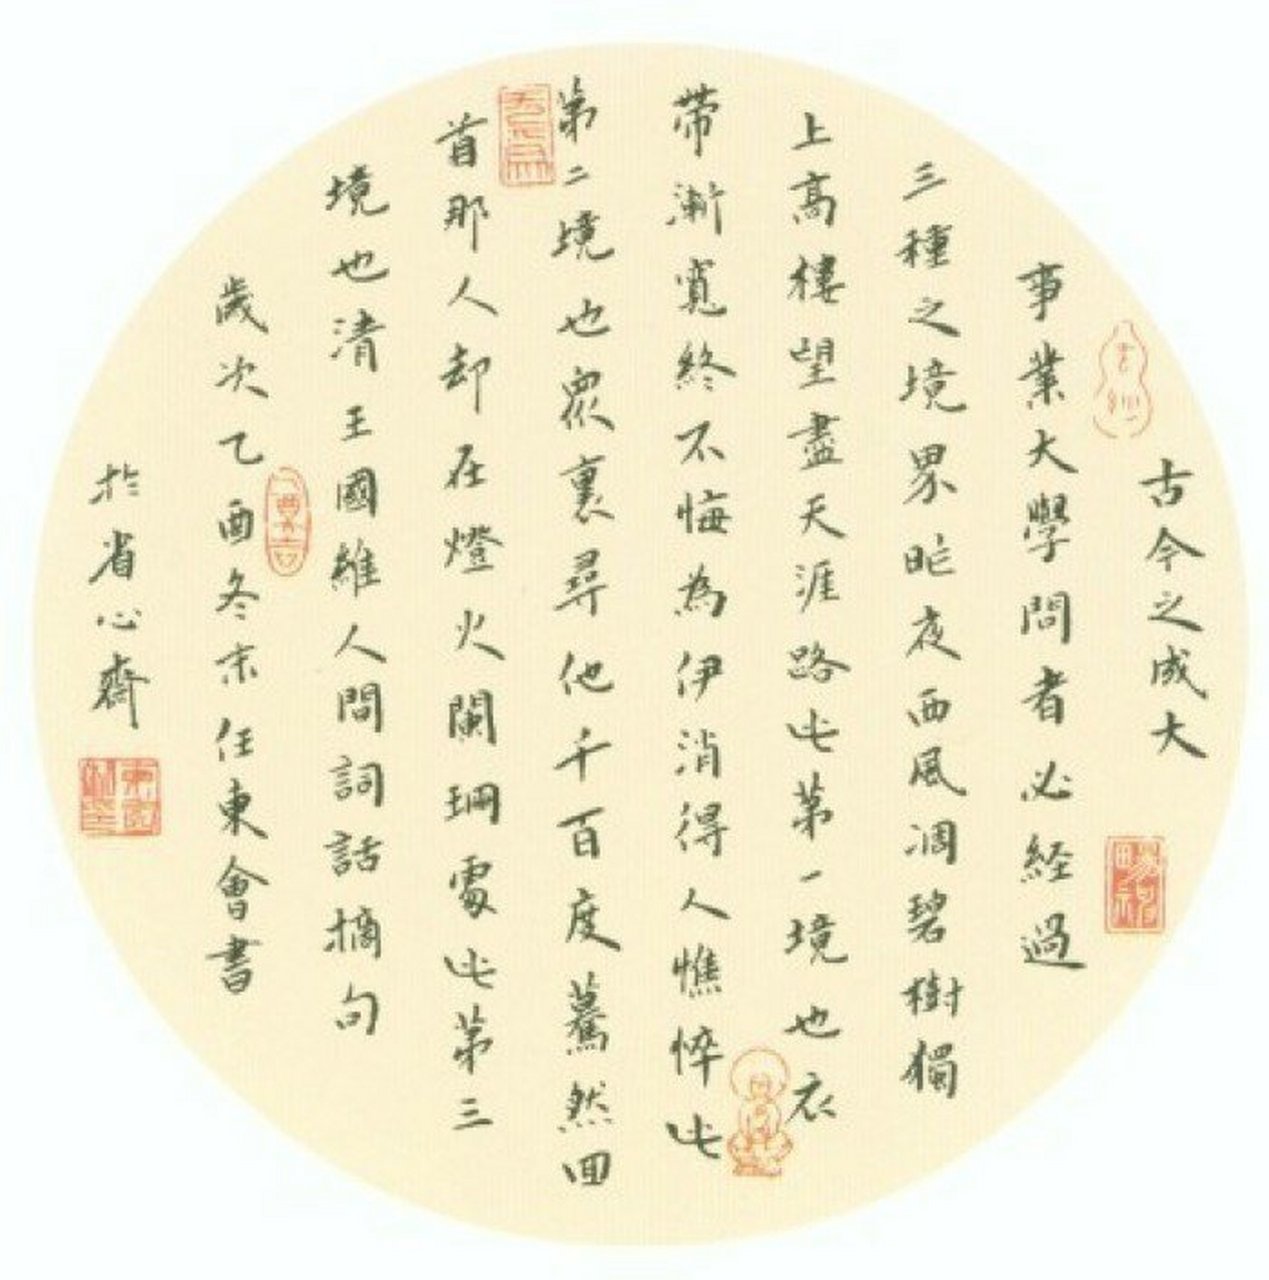 古今之成大
事業大學問者必経過
三種之境界昨夜西風凋碧樹獨
上高樓望盡天涯路此第一境也衣
帶漸寬終不悔為伊消得人憔悴此
第二境也眾裏尋他千百度驀然回
首那人却在燈火闌珊處此第三
境也清王國維人間詞話摘句
歲次乙酉冬末任東會書
於省心齋